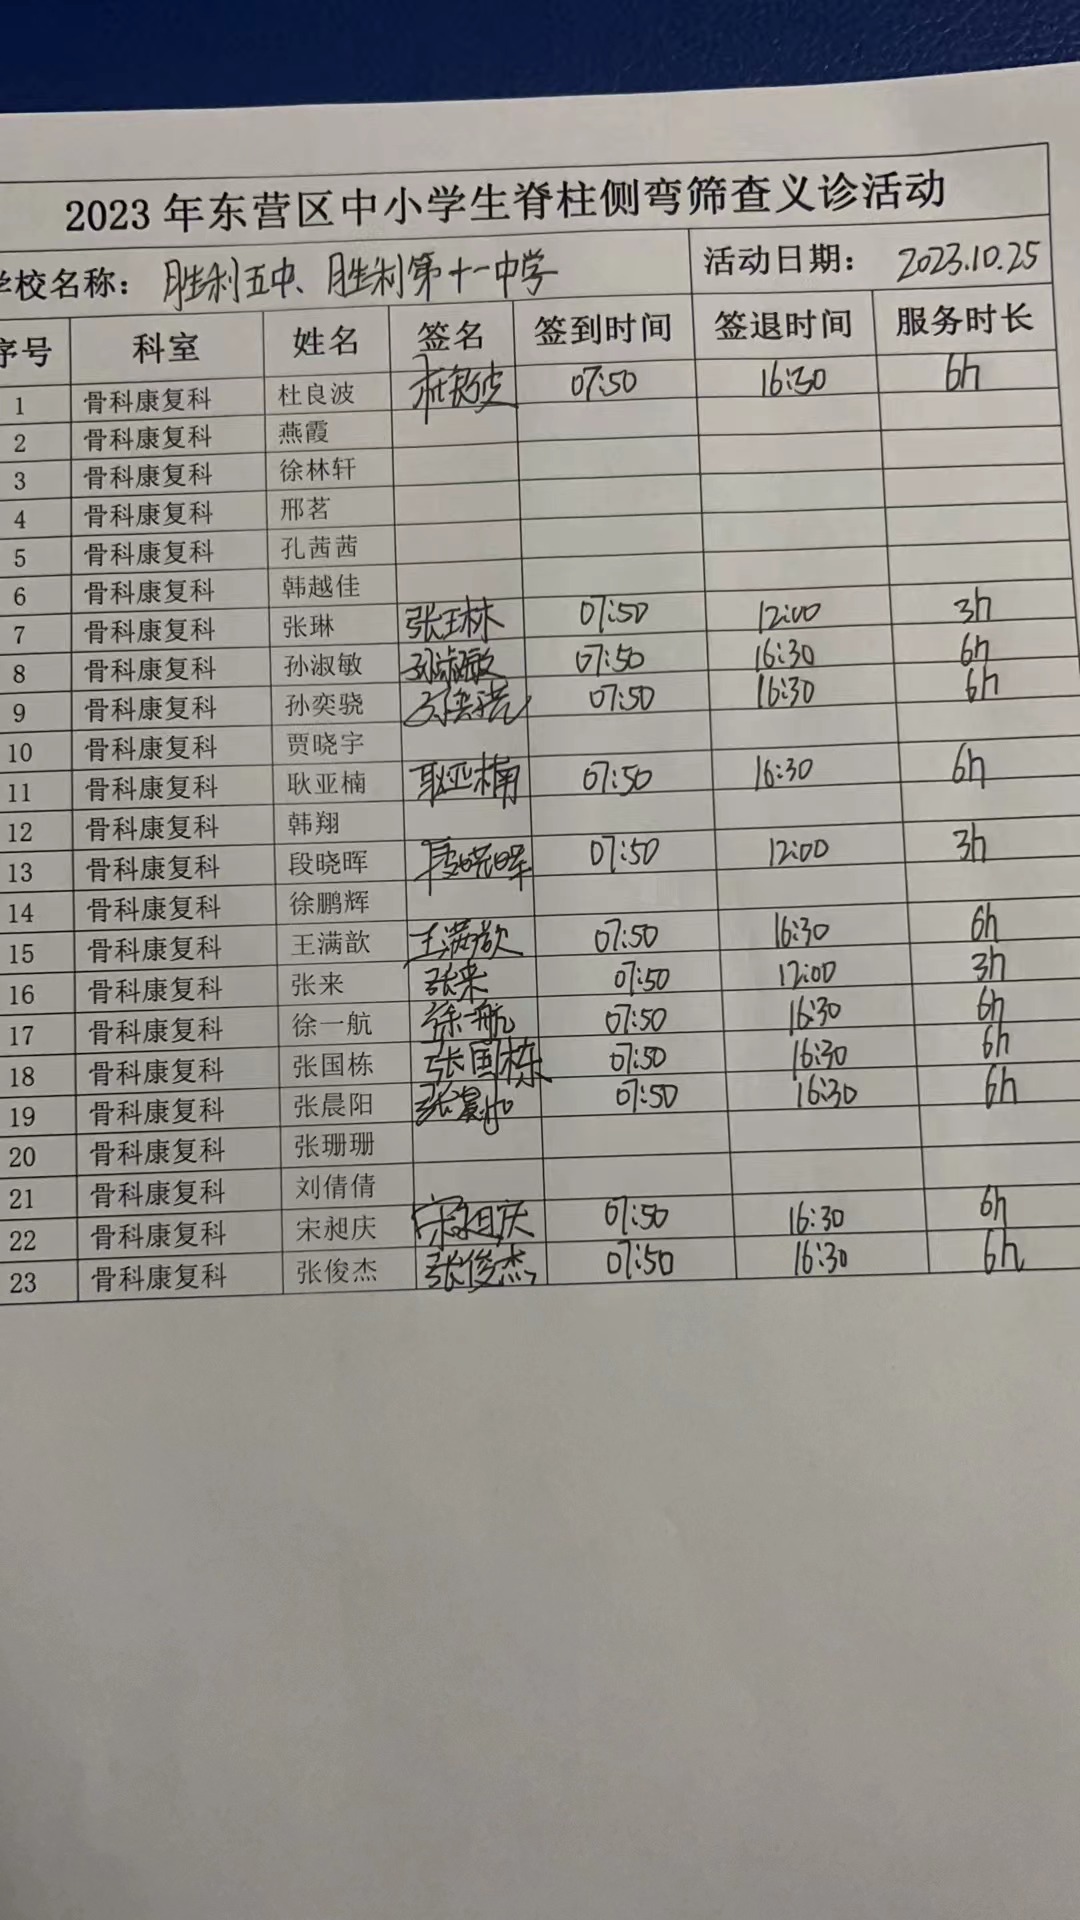 2023年东营区中小学生脊柱侧弯筛查义诊活动
学校名称：胜利五中、胜利第十一中学 活动日期：2023.10.25
序号 科室 姓名 签名 签到时间 签退时间 服务时长
1 骨科康复科 杜良波 杜良波 07:50 16:30 6h
2 骨科康复科 燕霞
3 骨科康复科 徐林轩
4 骨科康复科 邢茗
5 骨科康复科 孔茜茜
6 骨科康复科 韩越佳
7 骨科康复科 张琳 张琳 07:50 12:00 3h
8 骨科康复科 孙淑敏 孙淑敏 07:50 16:30 6h
9 骨科康复科 孙奕骁 孙奕骁 07:50 16:30 6h
10 骨科康复科 贾晓宇
11 骨科康复科 耿亚楠 耿亚楠 07:50 16:30 6h
12 骨科康复科 韩翔
13 骨科康复科 段晓晖 段晓晖 07:50 12:00 3h
14 骨科康复科 徐鹏辉
15 骨科康复科 王满歆 王满歆 07:50 16:30 6h
16 骨科康复科 张来 张来 07:50 12:00 3h
17 骨科康复科 徐一航 徐一航 07:50 16:30 6h
18 骨科康复科 张国栋 张国栋 07:50 16:30 6h
19 骨科康复科 张晨阳 张晨阳 07:50 16:30 6h
20 骨科康复科 张珊珊
21 骨科康复科 刘倩倩
22 骨科康复科 宋昶庆 宋昶庆 07:50 16:30 6h
23 骨科康复科 张俊杰 张俊杰 07:50 16:30 6h